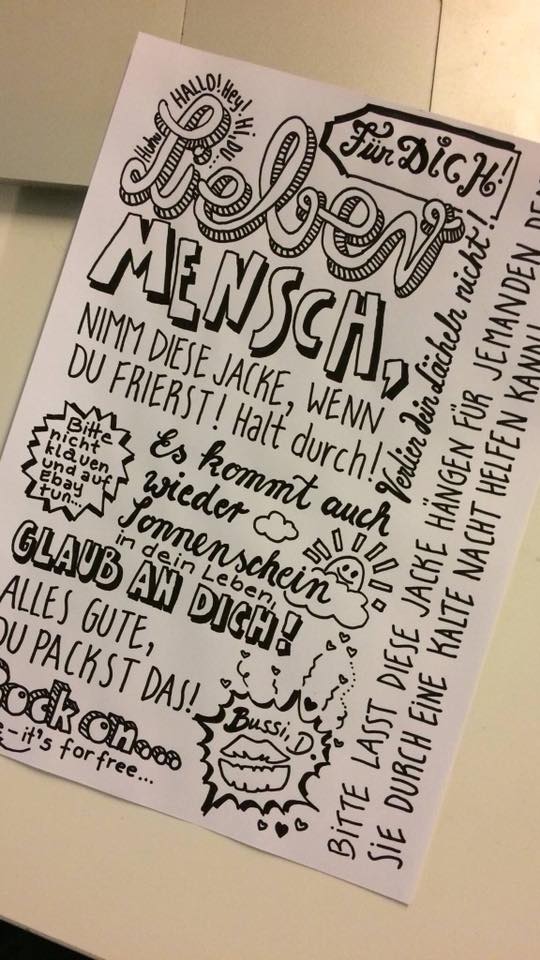 HALLO! Hey! Hi, DU...
Huhu
Für DICH!
Lieber
MENSCH,
NIMM DIESE JACKE, WENN
DU FRIERST! Halt durch!
Verlier dein Lächeln nicht!
Bitte
nicht
klauen
und auf
Ebay
tun...
Es kommt auch
wieder
Sonnenschein
in dein Leben,
GLAUB AN DICH!
ALLES GUTE,
DU PACKST DAS!
Rock on...
it's for free...
Bussi, D.
BITTE LASST DIESE JACKE HÄNGEN FÜR JEMANDEN DEN
SIE DURCH EINE KALTE NACHT HELFEN KANN!